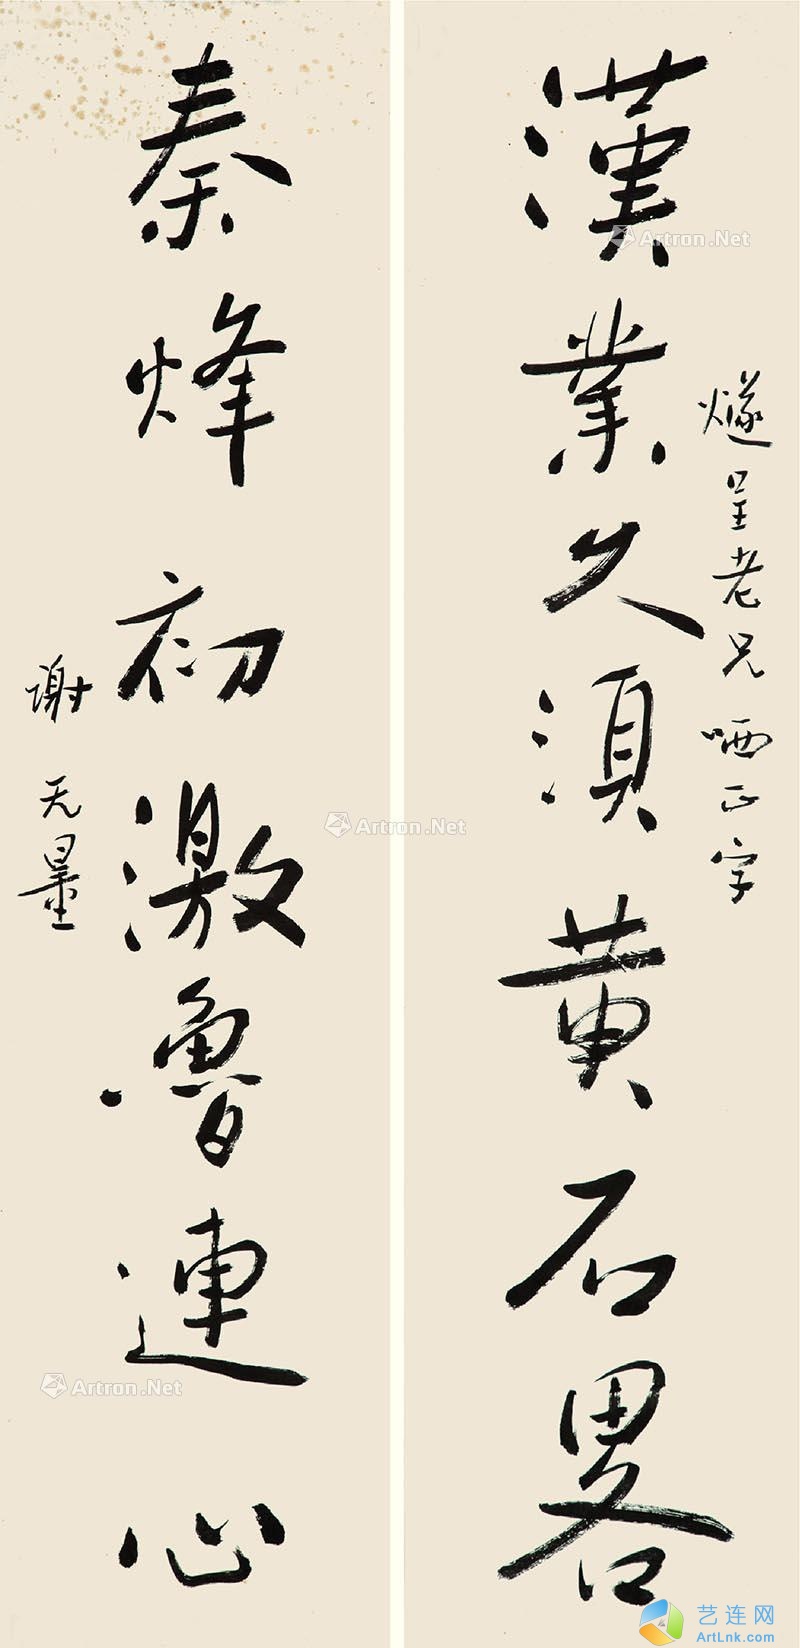 漢業久須黄石畧
燧呈老兄哂正字
秦烽初激魯連心
谢无量
Artron.Net
Artron.Net
Artron.Net
艺连网
ArtLnk.com